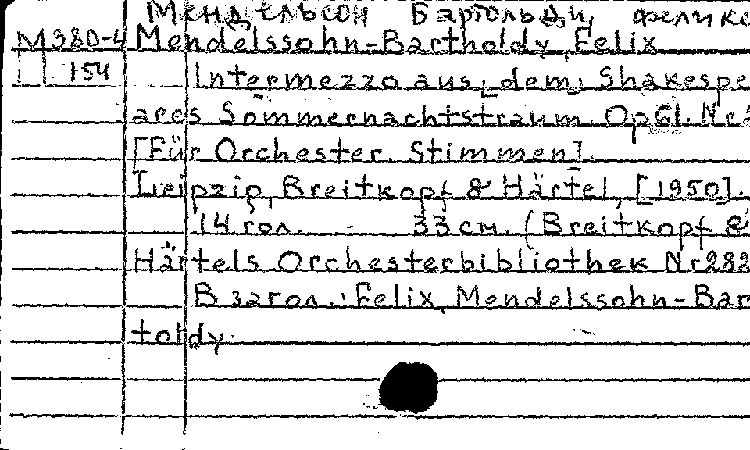 Мендельсон Бартольди, Феликс
М380-4 Mendelssohn-Bartholdy, Felix
154 Intermezzo aus dem Shakespe
ares Sommernachtstraum. Op 61. Nr
[Für Orchester. Stimmen].
Leipzig, Breitkopf & Härtel, [1950].
14 гол. 33 см. (Breitkopf &
Härtels Orchesterbibliothek Nr 282
В загол.: Felix Mendelssohn-Bar
toldy.